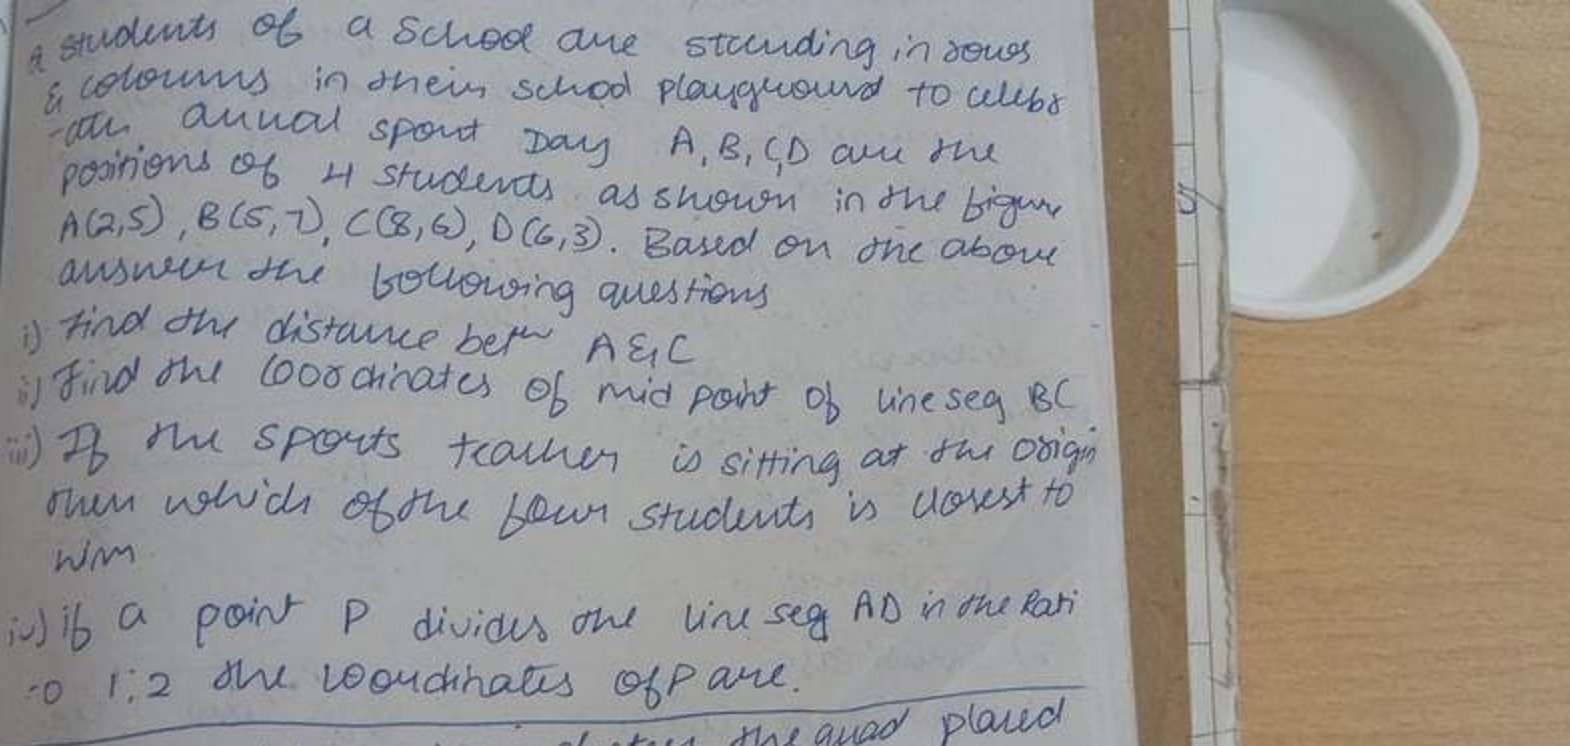 Q students of a School are standing in rows
& coloums in their school playground to celebr
-ate annual sport Day A, B, C, D are the
positions of 4 students as shown in the figure
A(2,5), B(5,7), C(8,6), D(6,3). Based on the above
answer the following questions
i) Find the distance betn A & C
ii) Find the Coordinates of mid point of line seg BC
iii) If the sports teacher is sitting at the origin
then which of the four students is closest to
him
iv) if a point P divides the line seg AD in the Rati
-o 1:2 the coordinates of P are.
the quad placed